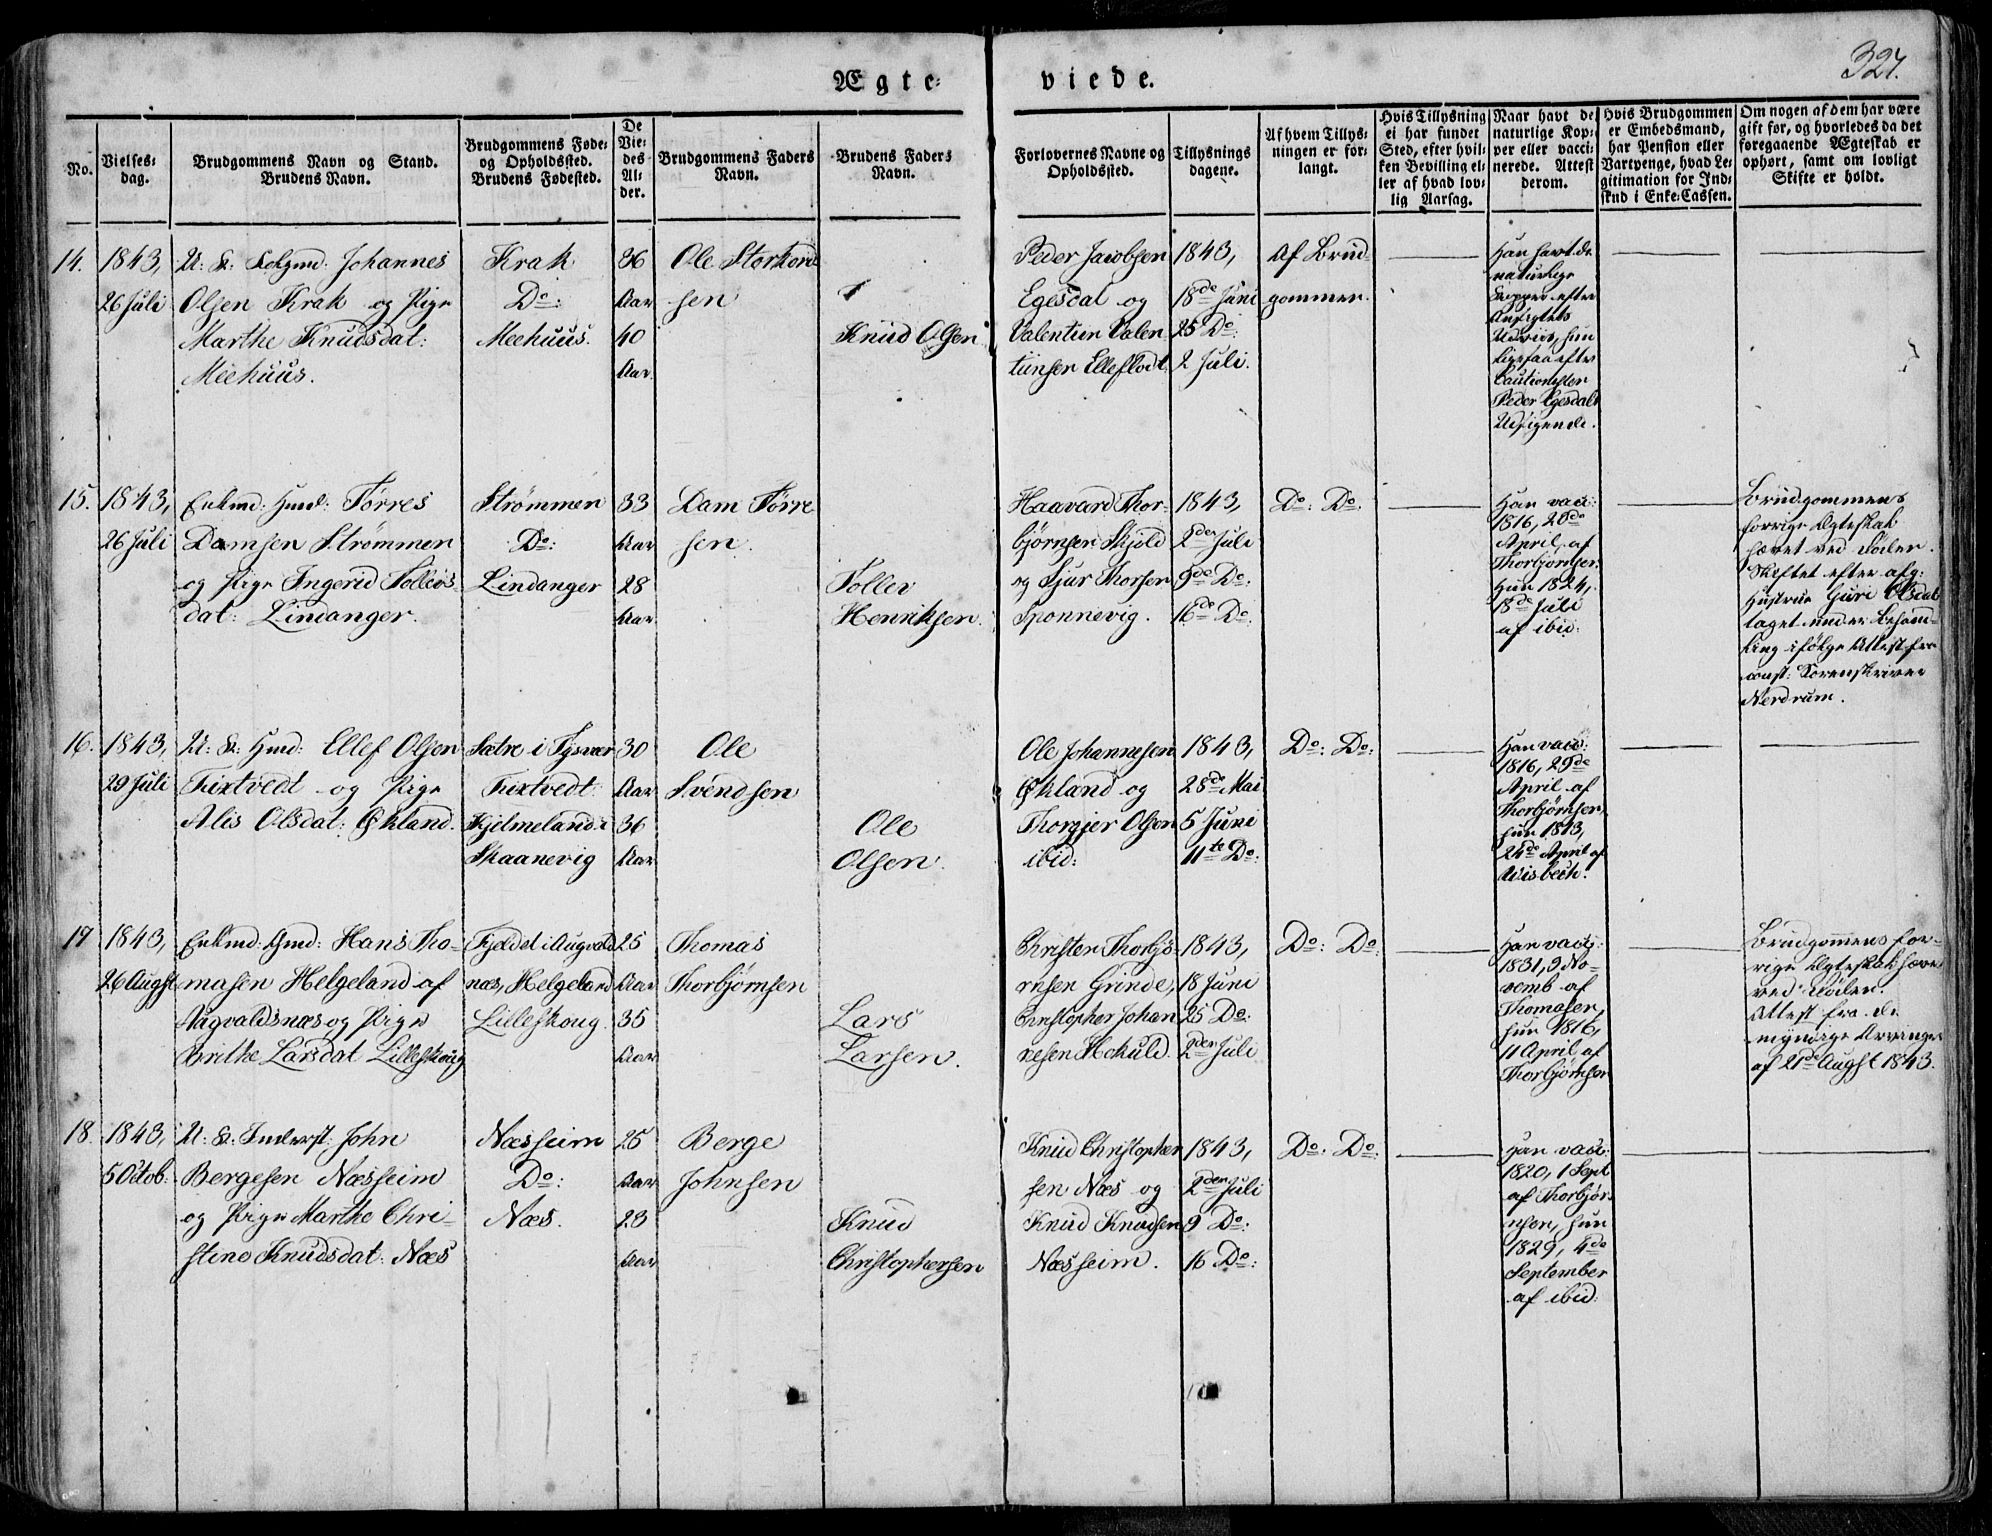 327.
Ægte-
viede.
No.
Vielses-
dag.
Brudgommens Navn og Stand.
Brudens Navn.
Brudgommens Føde-
og Opholdssted.
Brudens Fødested.
De
Vie-
des
Al-
der.
Brudgommens Faders
Navn.
Brudens Faders
Navn.
Forlovernes Navne og
Opholdssted.
Tillysnings
dagene.
Af hvem Tillys-
ningen er for-
langt.
Hvis Tillysning
ei har fundet
Sted, efter hvil-
ken Bevilling el-
ler af hvad lov-
lig Aarsag.
Naar havt de
naturlige Kop-
per eller vacci-
nerede. Attest
derom.
Hvis Brudgommen
er Embedsmand,
har Pension eller
Vartpenge, hvad Le-
gitimation for Ind-
skud i Enke-Cassen.
Om nogen af dem har være
gift før, og hvorledes da det
foregaaende Ægteskab er
ophørt, samt om lovligt
Skifte er holdt.
14.
1843,
26 Juli
U: K: Johannes
Olsen Krak og Pige
Marthe Knudsdat:
Meehuus.
Krak
Do:
Meehuus.
36
Aar
40
Aar
Ole Storkord
sen
Knud Olsen
Peder Jacobsen
Egesdal og
Valentin Valen
tinsen Elleflodt
1843,
18de Juni
25 Do:
2 Juli.
Af Brud
gommen.
Han havt de
naturlige
Kopper efter
Ansigtets
Udviis, hun
ligesaa efter
Cautionisten
Peder Egesdals
Udsigende.
15.
1843,
26 Juli
Enkmd: Huusmd: Tørres
Damsen Strømmen
og Pige Ingerid Tollevs
dat: Lindanger.
Strømmen
Do:
Lindanger
33
Aar
28
Aar
Dam Tørre
sen.
Tollev
Henriksen.
Haavard Thor-
bjørnsen Skjold
og Sjur Thorsen
Sponnevig.
1843,
2den Juli
9de Do:
16de Do:
Do: Do:
Han vacc:
1816, 20de
April, af
Thorbjørnsen:
Hun 1824,
18de Juli
af ibid:
Brudgommens
forrige Ægteskab
hævet ved Døden.
Skiftet efter afg:
Hustrue Guri Olsdat
taget under Behand-
ling ifølge Attest fra
const: Sorenskriver
Nerdrum.
16.
1843,
29 Juli
U: K: Huusmd: Ellef Olsen
Tixtvedt og Pige
Alis Olsdat: Økland.
Sætre i Tysvær
Tixtvedt
Hjelmeland i
Skaanevig
30
Aar
36
Aar
Ole
Svendsen
Ole
Olsen.
Ole Johannesen
Økland og
Thorgjer Olsen
ibid:
1843,
28de Mai
5 Juni
11te Do:
Do: Do:
Han vacc:
1816, 29de
April af
Thorbjørnsen,
hun 1813,
24de April af
Avisbech.
17
1843,
26 Augst
Enkmd: Gmd: Hans Tho-
masen Helgeland af
Augvaldsnæs og Pige
Brithe Larsdat Lilleskoug
Fjeldet i Augvalds
næs, Helgeland
Lilleskoug.
25
Aar
35
Aar
Thomas
Thorbjørnsen
Lars
Larsen.
Christen Thorbjø-
rnsen Grinde,
Christopher Johan
nesen Hekuld.
1843,
18 Juni
25 Do:
2den Juli
Do: Do:
Han vacc:
1831, 9 No-
vemb af
Thomasen,
hun 1816,
11 April, af
Thorbjørnsen
Brudgommens for-
rige Ægteskab hævet
ved Døden.
Attest fra de
myndige Arvinger
af 21de Augst 1843.
18.
1843,
5 Octob:
U: K: Inderst: John
Bergesen Næsseim
og Pige Marthe Chri-
stine Knudsdat: Næs
Næsseim
Do:
Næs.
25
Aar
23
Aar
Berge
Johnsen
Knud
Christophersen
Knud Christopher
sen Næs og
Knud Knudsen
Næsseim.
1843,
2den Juli
9 Do:
16 Do:
Do: Do:
Han vacc:
1820, 1 Sept
af Thorbjør
nsen, hun
1829, 4de
September
af ibid: